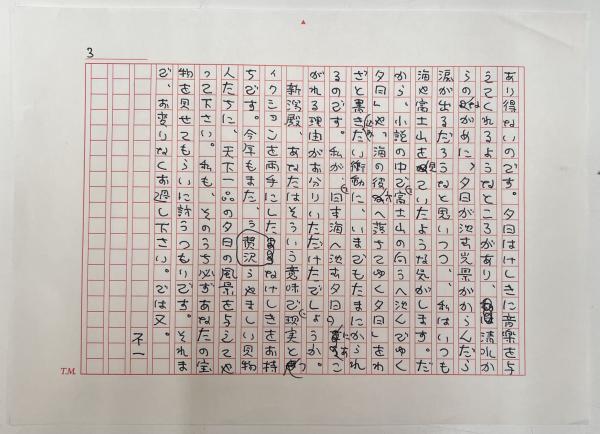 3
あり得ないのです。夕日はけしきに音楽を与
えてくれるようなところがあり、清水か
らのながめに、夕日が沈む光景がからんだら
涙が出るだろうなと思いつつ、私はいつも
海や富士山を見ていたような気がします。だ
から、小説の中で富士山の向うへ沈んでゆく
夕日」や、「海の彼方へ落ちてゆく夕日」をわ
ざと書きたい衝動に、いまでもたまにかられ
るのです。私が、「日本海へ沈む夕日」にあこ
がれる理由がお分りいただけたでしょうか。
新潟殿、あなたはそういう意味で「現実」と「フ
ィクション」を両手にしたけしきをお持
ちです。今年もまた、うらやましい見物
贅沢
人たちに、天下一品の夕日の風景を与えてや
って下さい。私も、そのうち必ずあなたの宝
物を見せてもらいに訪うつもりです。それま
で、お変りなくお過し下さい。では又。
不一
T.M.